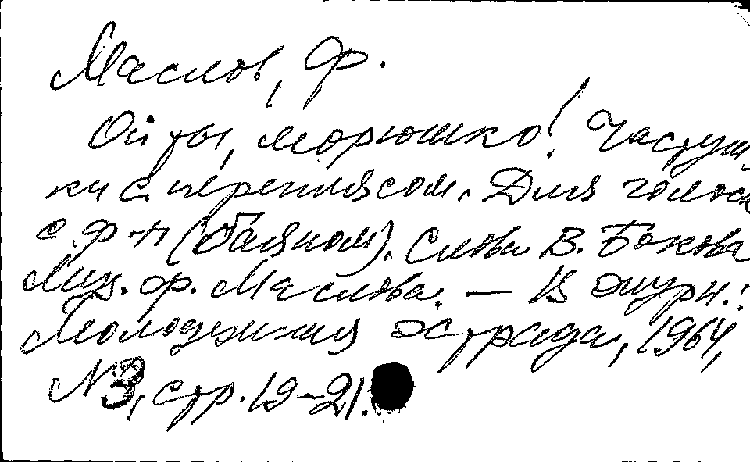 Маслов, Ф.
Ой ты, морюшко! Частуш
ки с переплясом. Для голоса
с ф-п (баяном). Слова В. Бокова
Муз. Ф. Маслова. — В журн.:
Молодежная эстрада, 1964,
№3, стр. 19-21.